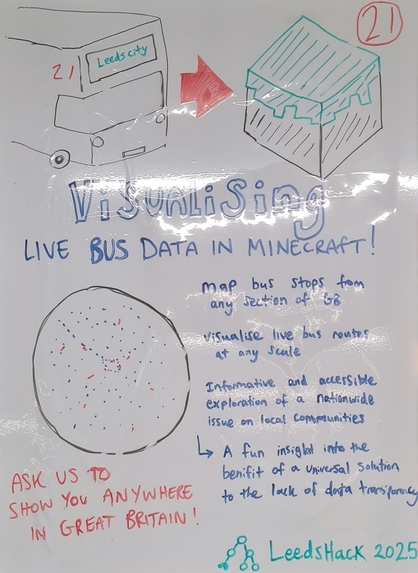 21
Leeds city
21
VISUALISING
LIVE BUS DATA IN MINECRAFT!
Map bus stops from
any section of GB
Visualise live bus routes
at any scale
Informative and accessible
exploration of a nationwide
issue on local communities
A fun insight into the
benifit of a universal solution
to the lack of data transparency
ASK US TO
SHOW YOU ANYWHERE
IN GREAT BRITAIN!
LEEDSHACK 2025